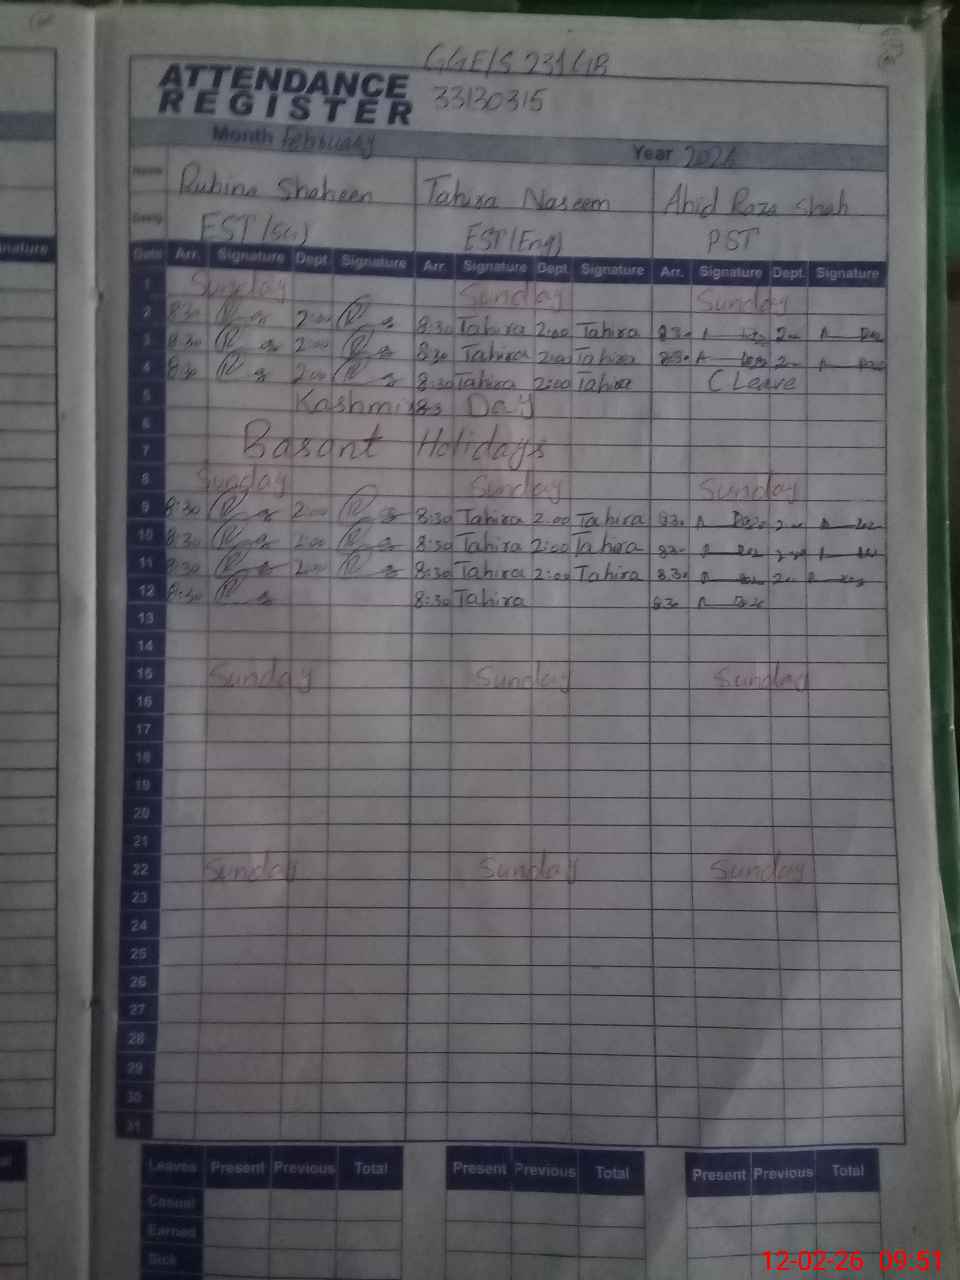 GGE/S 231 GB
ATTENDANCE
REGISTER
33130315
Month February
Year 2026
Name Rubina Shaheen Tahira Naseem Abid Raza Shah
EST (Sci) EST (Eng) PST
Date Arr. Signature Dept. Signature Arr. Signature Dept. Signature Arr. Signature Dept. Signature
1 Sunday Sunday Sunday
2 8:30 2:00 8:30 Tahira 2:00 Tahira 8:30
3 8:30 2:00 8:30 Tahira 2:00 Tahira 8:30
4 8:30 2:00 8:30 Tahira 2:00 Tahira C Leave
5 Kashmir Day
6
Basant Holidays
7
8 Sunday Sunday Sunday
9 8:30 2:00 8:30 Tahira 2:00 Tahira 830
10 8:30 2:00 8:30 Tahira 2:00 Tahira 830
11 8:30 2:00 8:30 Tahira 2:00 Tahira 8.30
12 8:30 8:30 Tahira 830
13
14
15 Sunday Sunday Sunday
16
17
18
19
20
21
22 Sunday Sunday Sunday
23
24
25
26
27
28
29
30
31
Leaves Present Previous Total Present Previous Total Present Previous Total
Casual
Earned
Sick
12-02-26 09:51